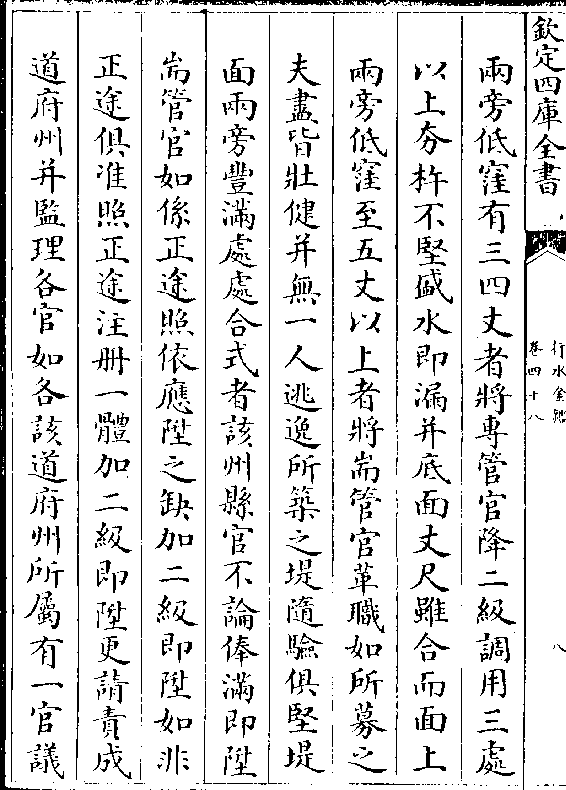 欽定四庫全書
行水金鑑
卷四十八
八
兩旁低窪有三四丈者將專管官降二級調用三處
以上夯杵不堅盛水即漏并底面丈尺雖合而面上
兩旁低窪至五丈以上者將耑管官革職如所募之
夫盡皆壯健并無一人逃逸所築之堤隨驗俱堅堤
面兩旁豐滿處處合式者該州縣官不論俸滿即陞
耑管官如係正途照依應陞之缺加二級即陞如非
正途俱准照正途注册一體加二級即陞更請責成
道府州并監理各官如各該道府州所屬有一官議